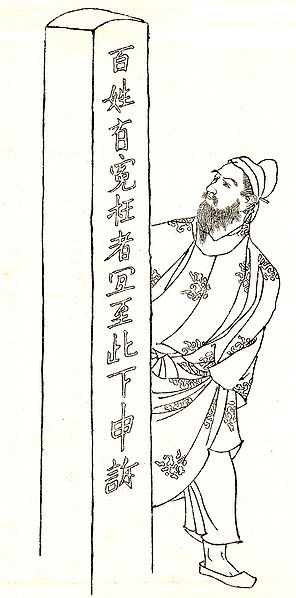 百姓有寃枉者宜至此下申訴